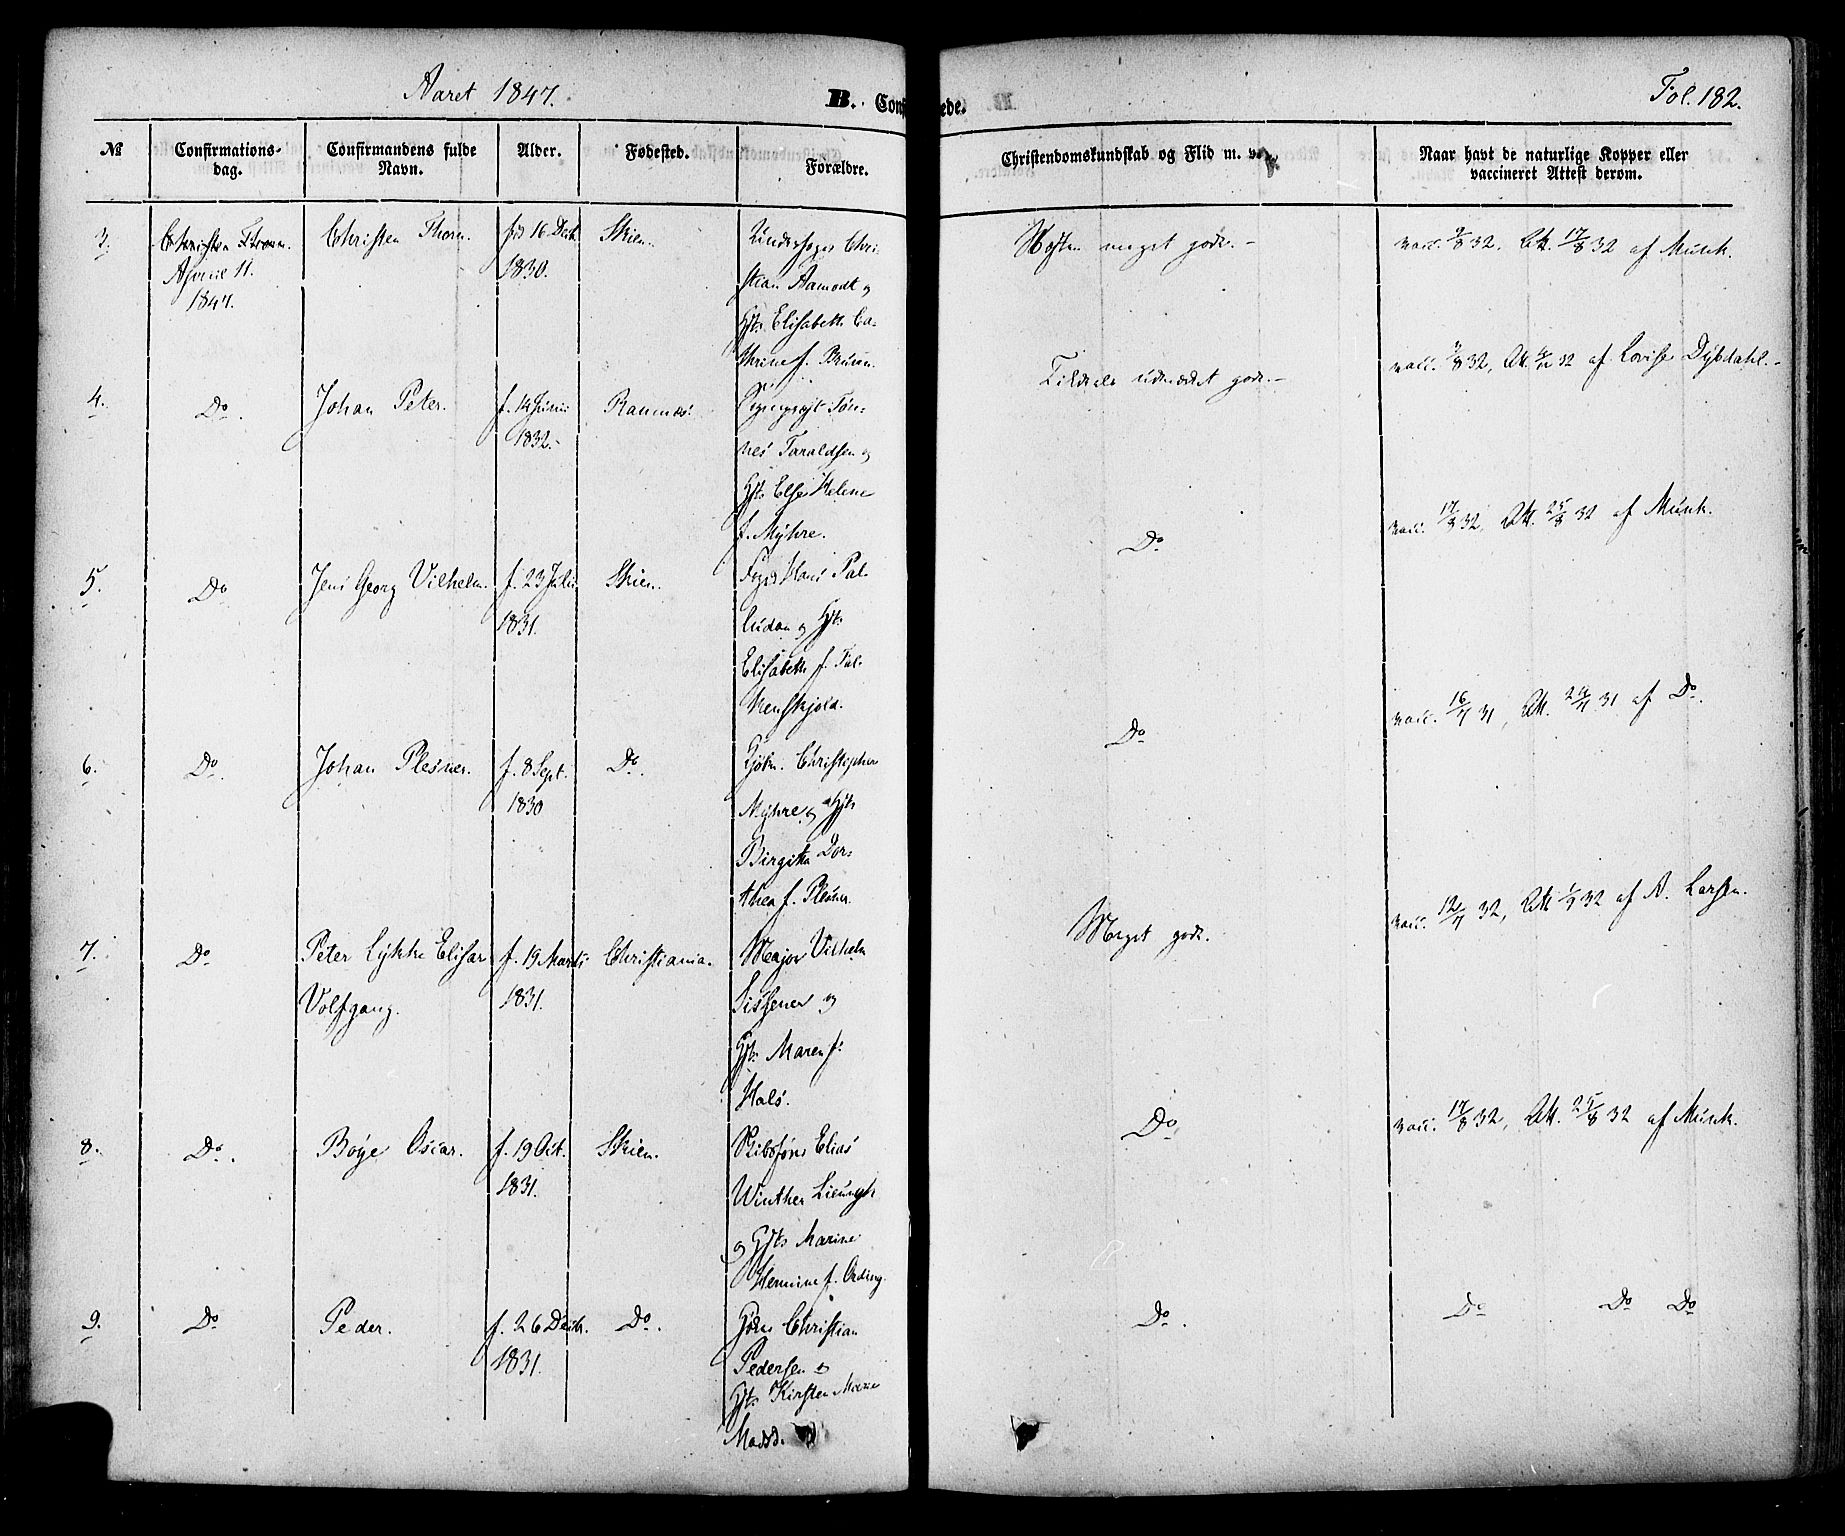 Aaret 1847.
B. Conf
ede.
Fol. 182.
№
Confirmations-
dag.
Confirmandens fulde
Navn.
Alder.
Fødested.
Forældre.
Christendomskundskab og Flid m. v.
Naar havt de naturlige Kopper eller
vaccineret Attest derom.
3.
Christen Thorn.
April 11.
1847.
Christen Thorn.
16 Decb.
1830.
Skien.
Chri-
stian Aamodt og
Hst. Elisabeth Ca-
thrine f. Bruun.
Næsten meget godt. -
vacc. 9/8 32, Att. 17/8 32 af Munk.
4.
Do.
Johan Peter.
f. 14 Juni
1832. -
Ramnæs.
Tøn-
nes Taraldsen og
Hst. Else Helene
f. Myhre.
Tildels udmærket godt. -
32, Att. 32 af Lovise Dybdahl. -
5.
Do
Jens Georg Vilhelm.
f. 23 Juli
1831.
Skien.
Foged Hans Pal-
ludan og Hst.
Elisabeth f. Fal-
kenskjold.
Do
vacc. 17/8 32, Att. 25/8 32 af Munk.
6.
Do.
Johan Plesner.
f. 8 Sept.
1830
Do.
Kjøbm. Christopher
Myhre og Hst.
Birgitta Dor-
thea f. Plesner.
Do
vacc. 16/7 31, Att. 24/7 31 af Do.
7.
Do
Peter Lykke Elisar
Volfgang.
f. 19 Marts
1831.
Christiania.
Major Vilhelm
Sissener og
Hst. Maren f.
Hals.
Meget godt.
vacc. 12/7 32, Att. 32 af A. Larsen.
8.
Do.
Boye Oscar.
f. 19 Oct.
1831.
Skien.
Skibsfører Elias
Winther Lieungh
og Hst. Marine
Hermine f. Ording.
Do
vacc. 17/8 32, Att. 25/8 32 af Munk.
9.
Do
Peder.
f. 26 Decb.
1831.
Do.
Christian
Pedersen og
Hst. Kirsten Marie
Madsd.
Do.
Do Do Do